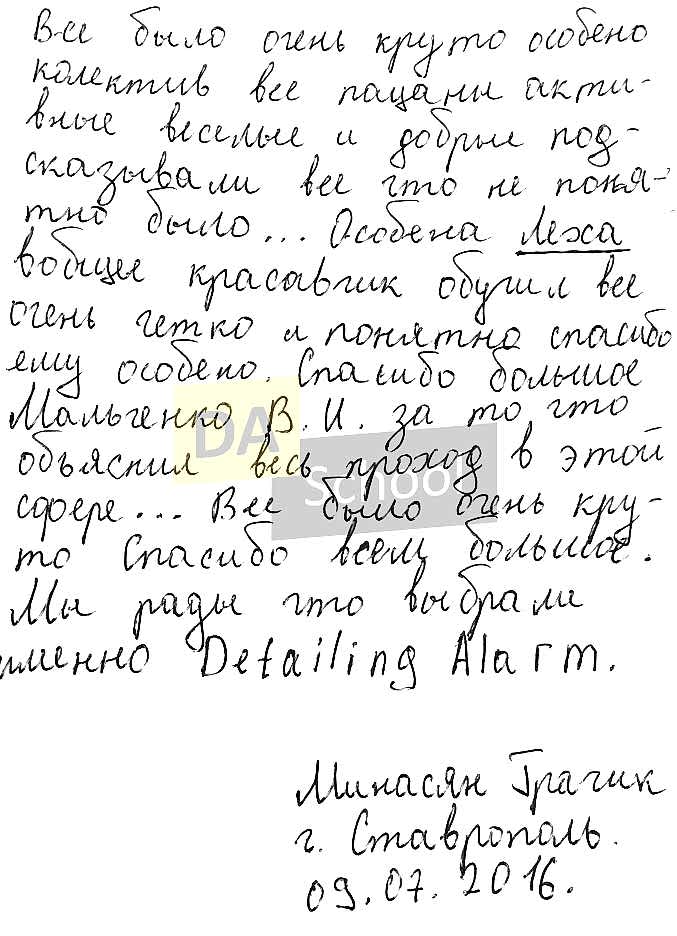 Все было очень круто особено
колектив все пацаны акти-
вные веселые и добрые под-
сказывали все что не поня-
тно было... Особена Леха
вобщее красавчик обучил все
очень четко и понятно спасибо
ему особено. Спасибо большое
Мальченко В.И. за то что
объяснил весь проход в этой
сфере... Все было очень кру-
то Спасибо всем большое.
Мы рады что выбрали
именно Detailing Alarm.
DA
School
Минасян Грачик
г. Ставрополь.
09.07.2016.